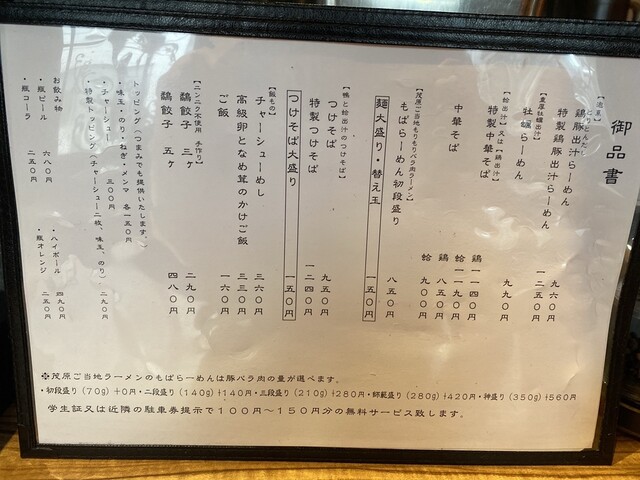 御品書
鶏豚出汁らーめん 九六〇円
特製鶏豚出汁らーめん 一二五〇円
【濃厚牡蠣出汁】
牡蠣らーめん 九九〇円
【蛤出汁】又は【鶏出汁】
特製中華そば 鶏一一四〇円 蛤一一九〇円
中華そば 鶏八五〇円 蛤九〇〇円
【茂原ご当地もりもりバラ肉ラーメン】
もばらーめん初段盛り 八五〇円
麺大盛り・替え玉 一五〇円
【鴨と蛤出汁のつけそば】
つけそば 九五〇円
特製つけそば 一二四〇円
つけそば大盛り 一五〇円
【飯もの】
チャーシューめし 三六〇円
高級卵となめ茸のかけご飯 三三〇円
ご飯 一六〇円
【ニンニク不使用 手作り】
鶏餃子 三ヶ 二九〇円
鶏餃子 五ヶ 四八〇円
トッピング(つまみでも提供いたします。)
・味玉・のり・ねぎ・メンマ 各一五〇円
・チャーシュー 三〇〇円
・特製トッピング(チャーシュー二枚、味玉、のり) 二九〇円
お飲み物
・瓶ビール 六八〇円
・ハイボール 四九〇円
・瓶コーラ 二五〇円
・瓶オレンジ 二五〇円
※茂原ご当地ラーメンのもばらーめんは豚バラ肉の量が選べます。
・初段盛り(70g)+0円・二段盛り(140g)+140円・三段盛り(210g)+280円・師範盛り(280g)+420円・神盛り(350g)+560円
学生証又は近隣の駐車券提示で100円~150円分の無料サービス致します。